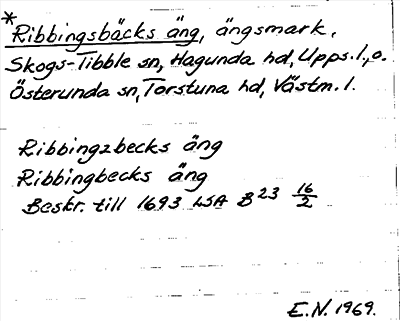 *Ribbingsbäcks äng, ängsmark,
Skogs-Tibble sn, Hagunda hd, Upps. l., o.
Österunda sn, Torstuna hd, Västm. l.
Ribbingzbecks äng
Ribbingbecks äng
Beskr. till 1693 LSA B 23 16/2
E.N. 1969.